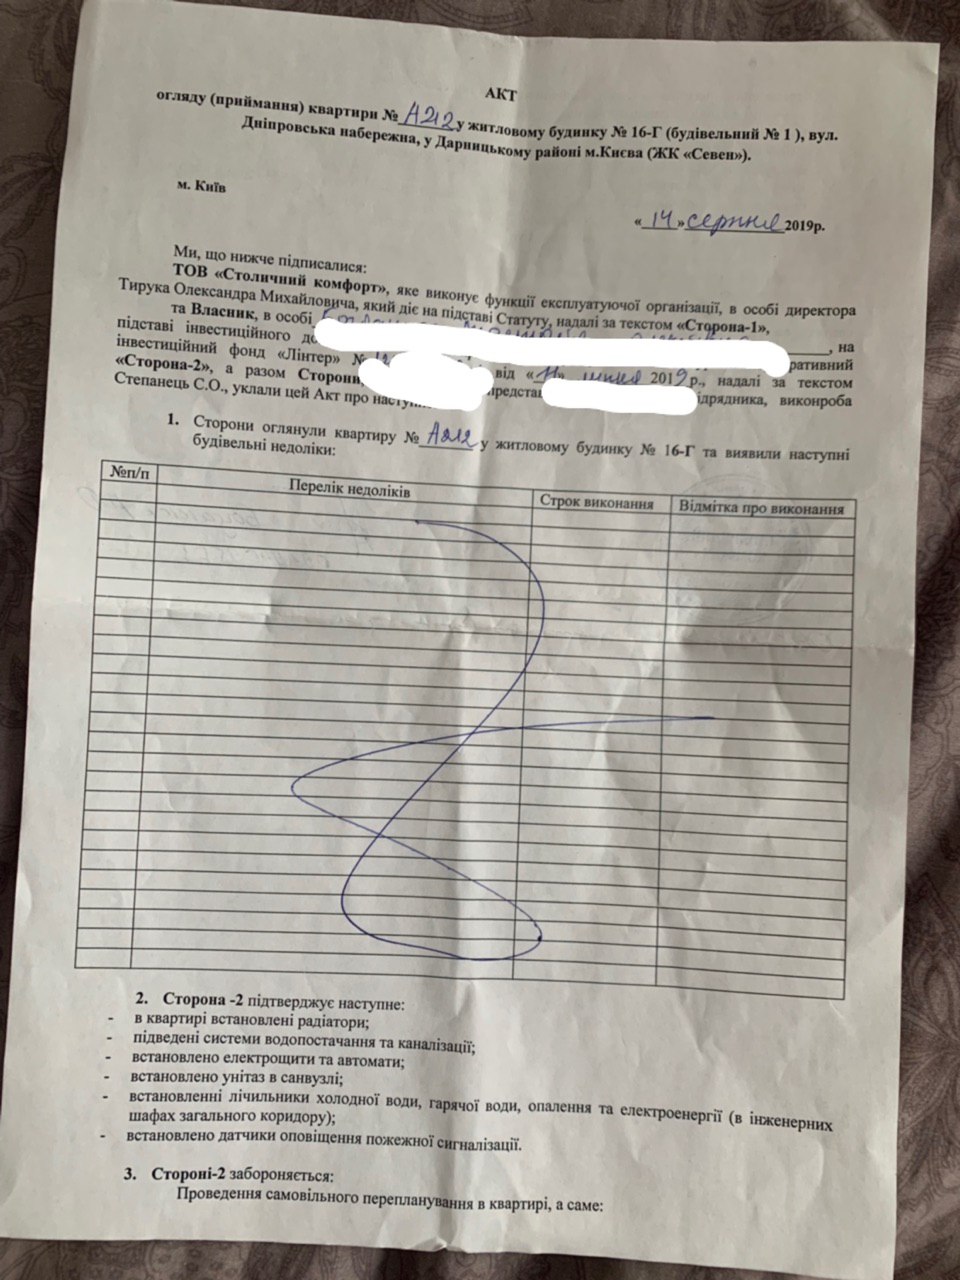 АКТ
огляду (приймання) квартири № А212 у житловому будинку № 16-Г (будівельний № 1 ), вул.
Дніпровська набережна, у Дарницькому районі м.Києва (ЖК «Севен»).
м. Київ
«14» серпня 2019р.
Ми, що нижче підписалися:
ТОВ «Столичний комфорт», яке виконує функції експлуатуючої організації, в особі директора
Тирука Олександра Михайловича, який діє на підставі Статуту, надалі за текстом «Сторона-1»,
та Власник, в особі , на
підставі інвестиційного до ративний
інвестиційний фонд «Лінтер» № від «11» 2019р., надалі за текстом
«Сторона-2», а разом Сторони, предста ідрядника, виконроба
Степанець С.О., уклали цей Акт про наступ
1. Сторони оглянули квартиру № А212 у житлового будинку № 16-Г та виявили наступні
будівельні недоліки:
№п/п Перелік недоліків Строк виконання Відмітка про виконання
2. Сторона -2 підтверджує наступне:
- в квартирі встановлені радіатори;
- підведені системи водопостачання та каналізації;
- встановлено електрощити та автомати;
- встановлено унітаз в санвузлі;
- встановленні лічильники холодної води, гарячої води, опалення та електроенергії (в інженерних
шафах загального коридору);
- встановлено датчики оповіщення пожежної сигналізації.
3. Стороні-2 забороняється:
Проведення самовільного перепланування в квартирі, а саме: